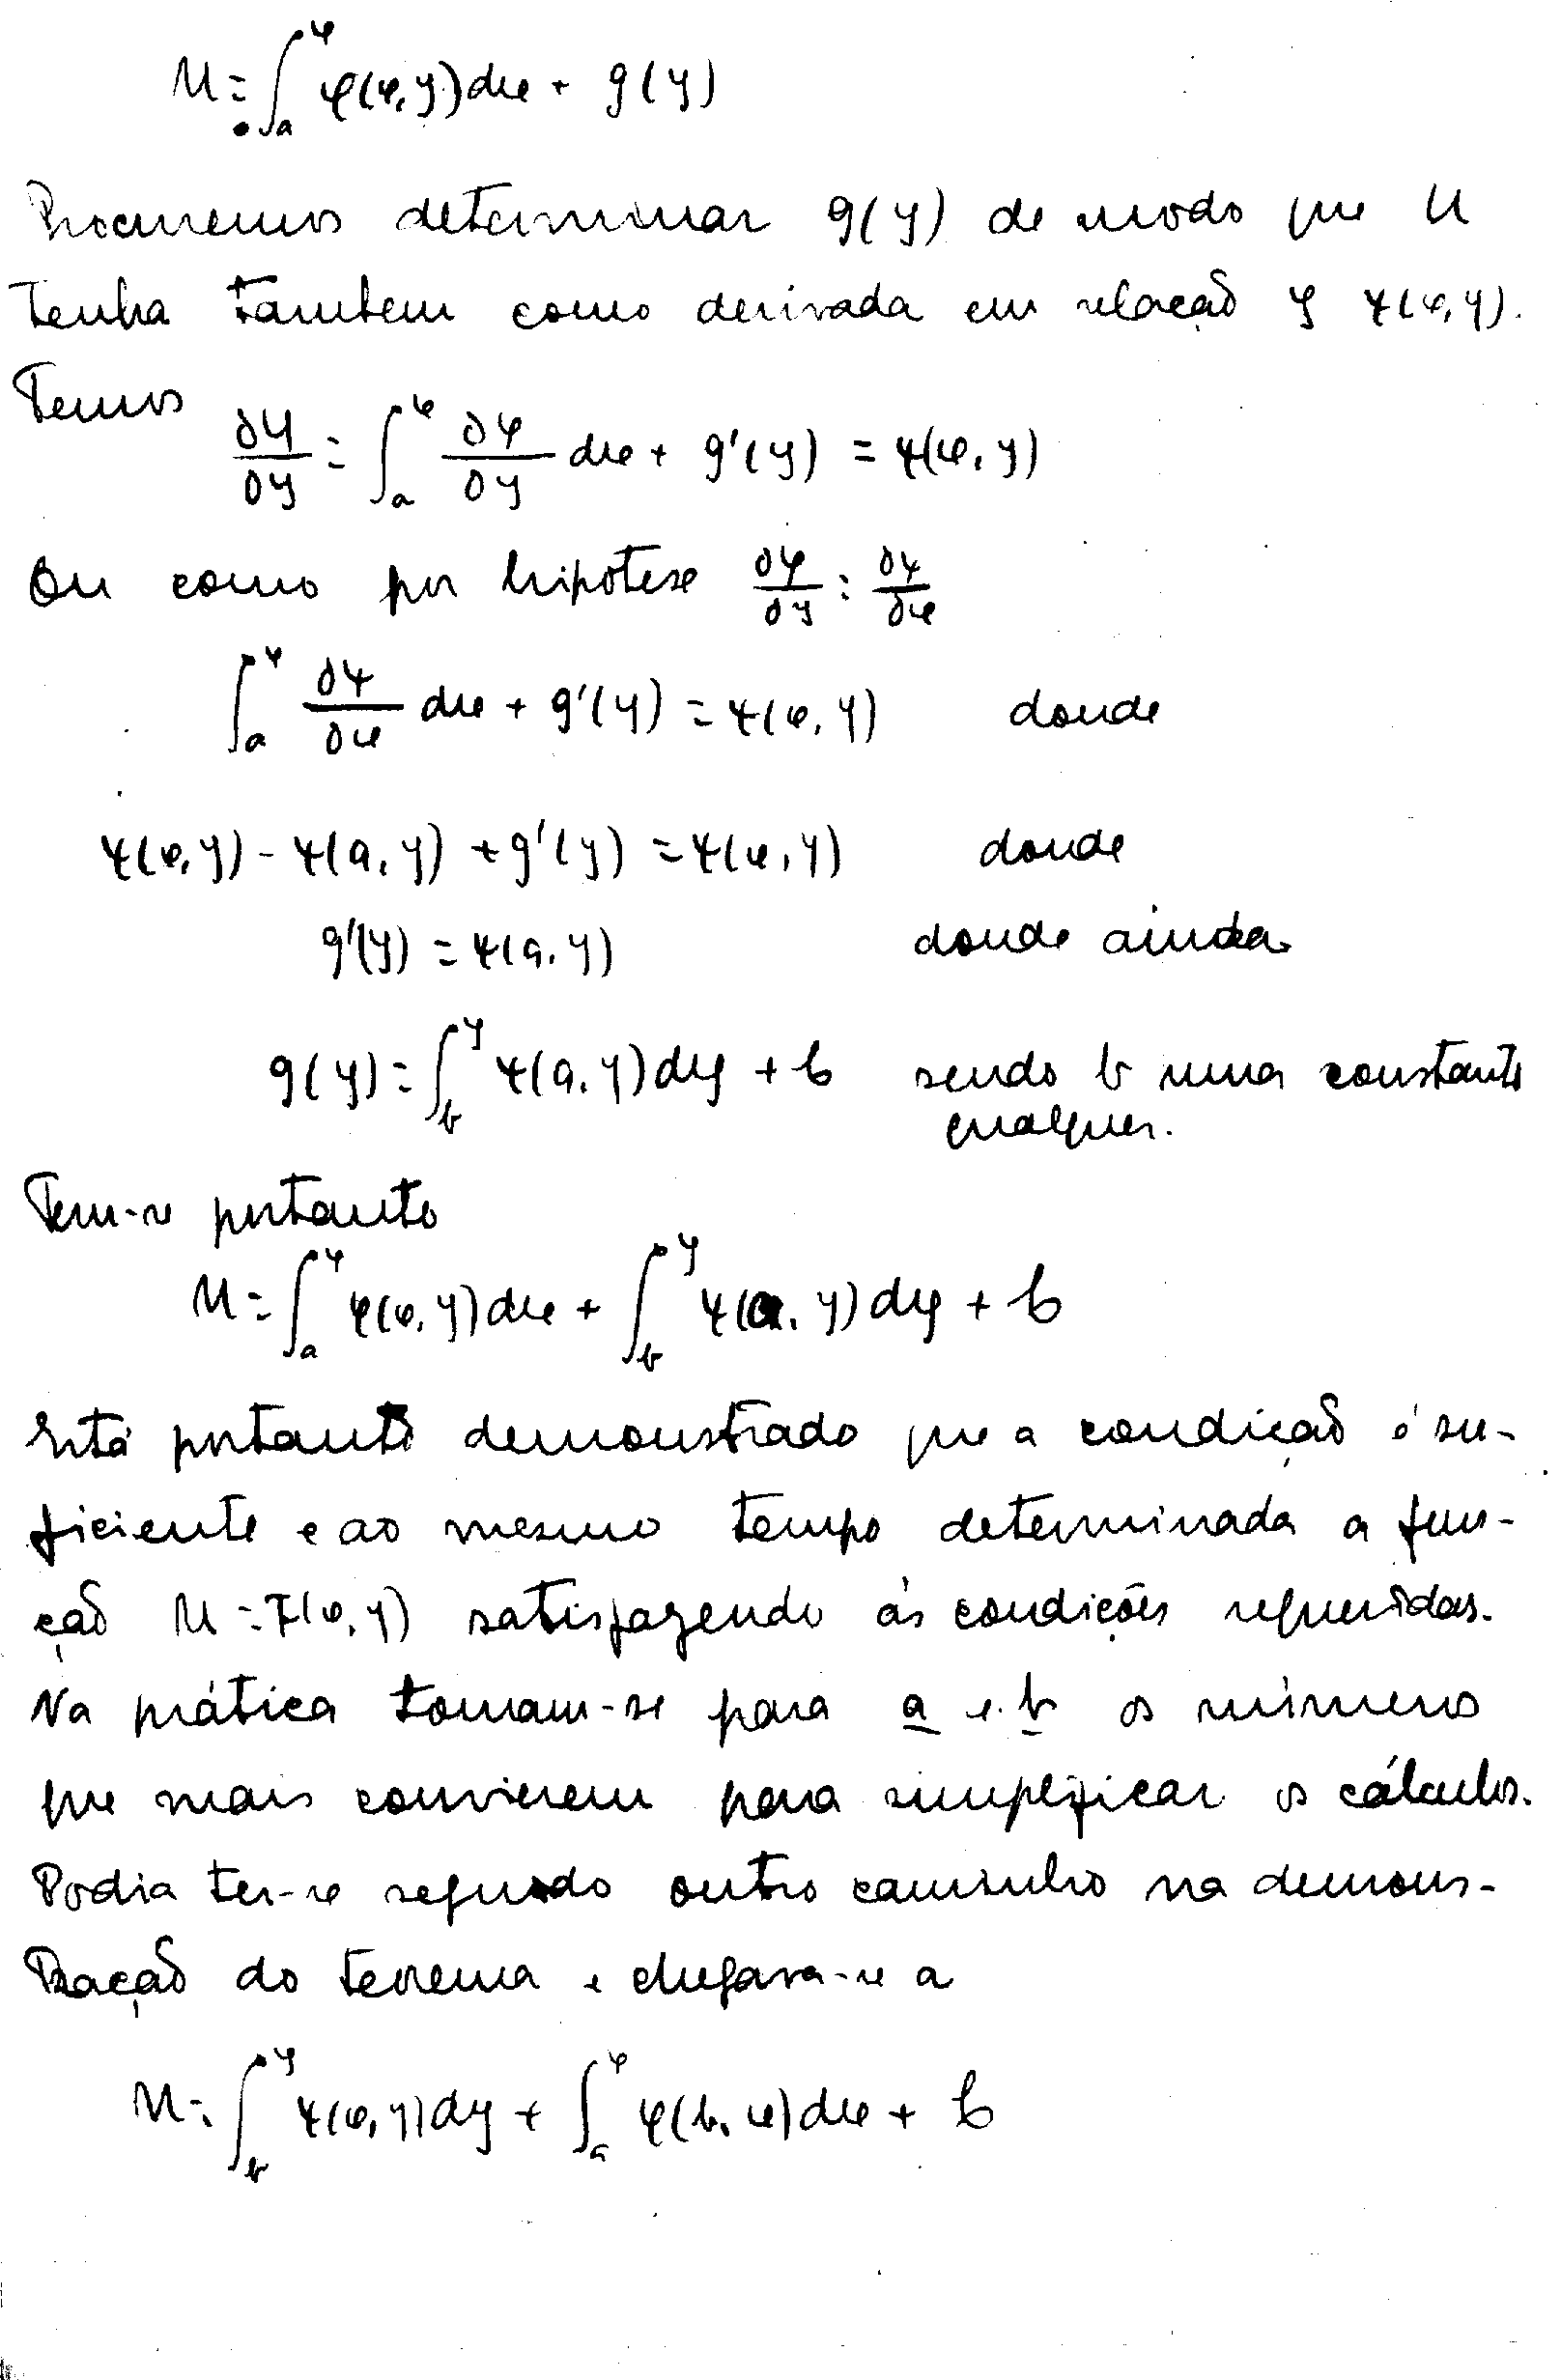 U = ∫ₐˣ φ(x, y) dx + g(y)
Procuremos determinar g(y) de modo que U
tenha tambem como derivada em relação y ψ(x, y).
Temos
∂U/∂y = ∫ₐˣ ∂φ/∂y dx + g'(y) = ψ(x, y)
Ou como por hipótese ∂φ/∂y = ∂ψ/∂x
∫ₐˣ ∂ψ/∂x dx + g'(y) = ψ(x, y) donde
ψ(x, y) - ψ(a, y) + g'(y) = ψ(x, y) donde
g'(y) = ψ(a, y) donde ainda
g(y) = ∫_b^y ψ(a, y) dy + C sendo b uma constante
qualquer.
Tem-se portanto
U = ∫ₐˣ φ(x, y) dx + ∫_b^y ψ(a, y) dy + C
Está portanto demonstrado que a condição é su-
ficiente e ao mesmo tempo determinada a fun-
ção U = F(x, y) satisfazendo ás condições requeridas.
Na prática tomam-se para a e b os números
que mais convierem para simplificar os cálculos.
Podia ter-se seguido outro caminho na demons-
tração do teorema e chegava-se a
U = ∫_b^y ψ(x, y) dy + ∫ₐˣ φ(b, x) dx + C